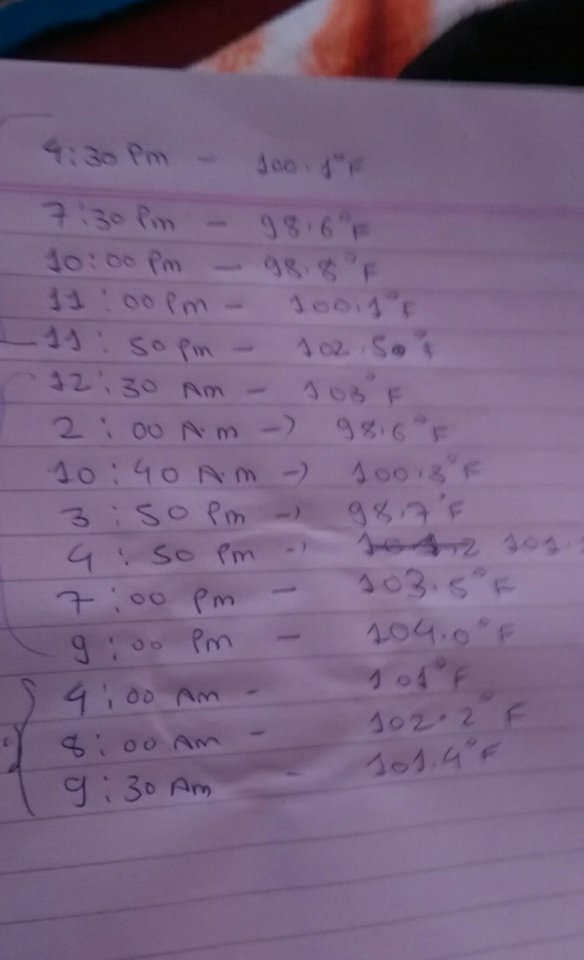 4:30 Pm - 100.1°F
7:30 Pm - 98.6°F
10:00 Pm - 98.8°F
11:00 Pm - 100.1°F
11:50 Pm - 102.50°
12:30 Am - 103°F
2:00 A.m -> 98.6°F
10:40 A.m -> 100.3°F
3:50 Pm -> 98.7°F
4:50 Pm -> 101.2 101.
7:00 Pm - 103.5°F
9:00 Pm - 104.0°F
4:00 Am - 101°F
8:00 Am - 102.2°F
9:30 Am - 101.4°F